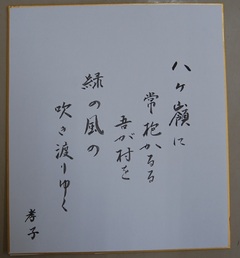 八ヶ嶺に
常抱かるる
吾が村を
緑の風の
吹き渡りゆく
孝子